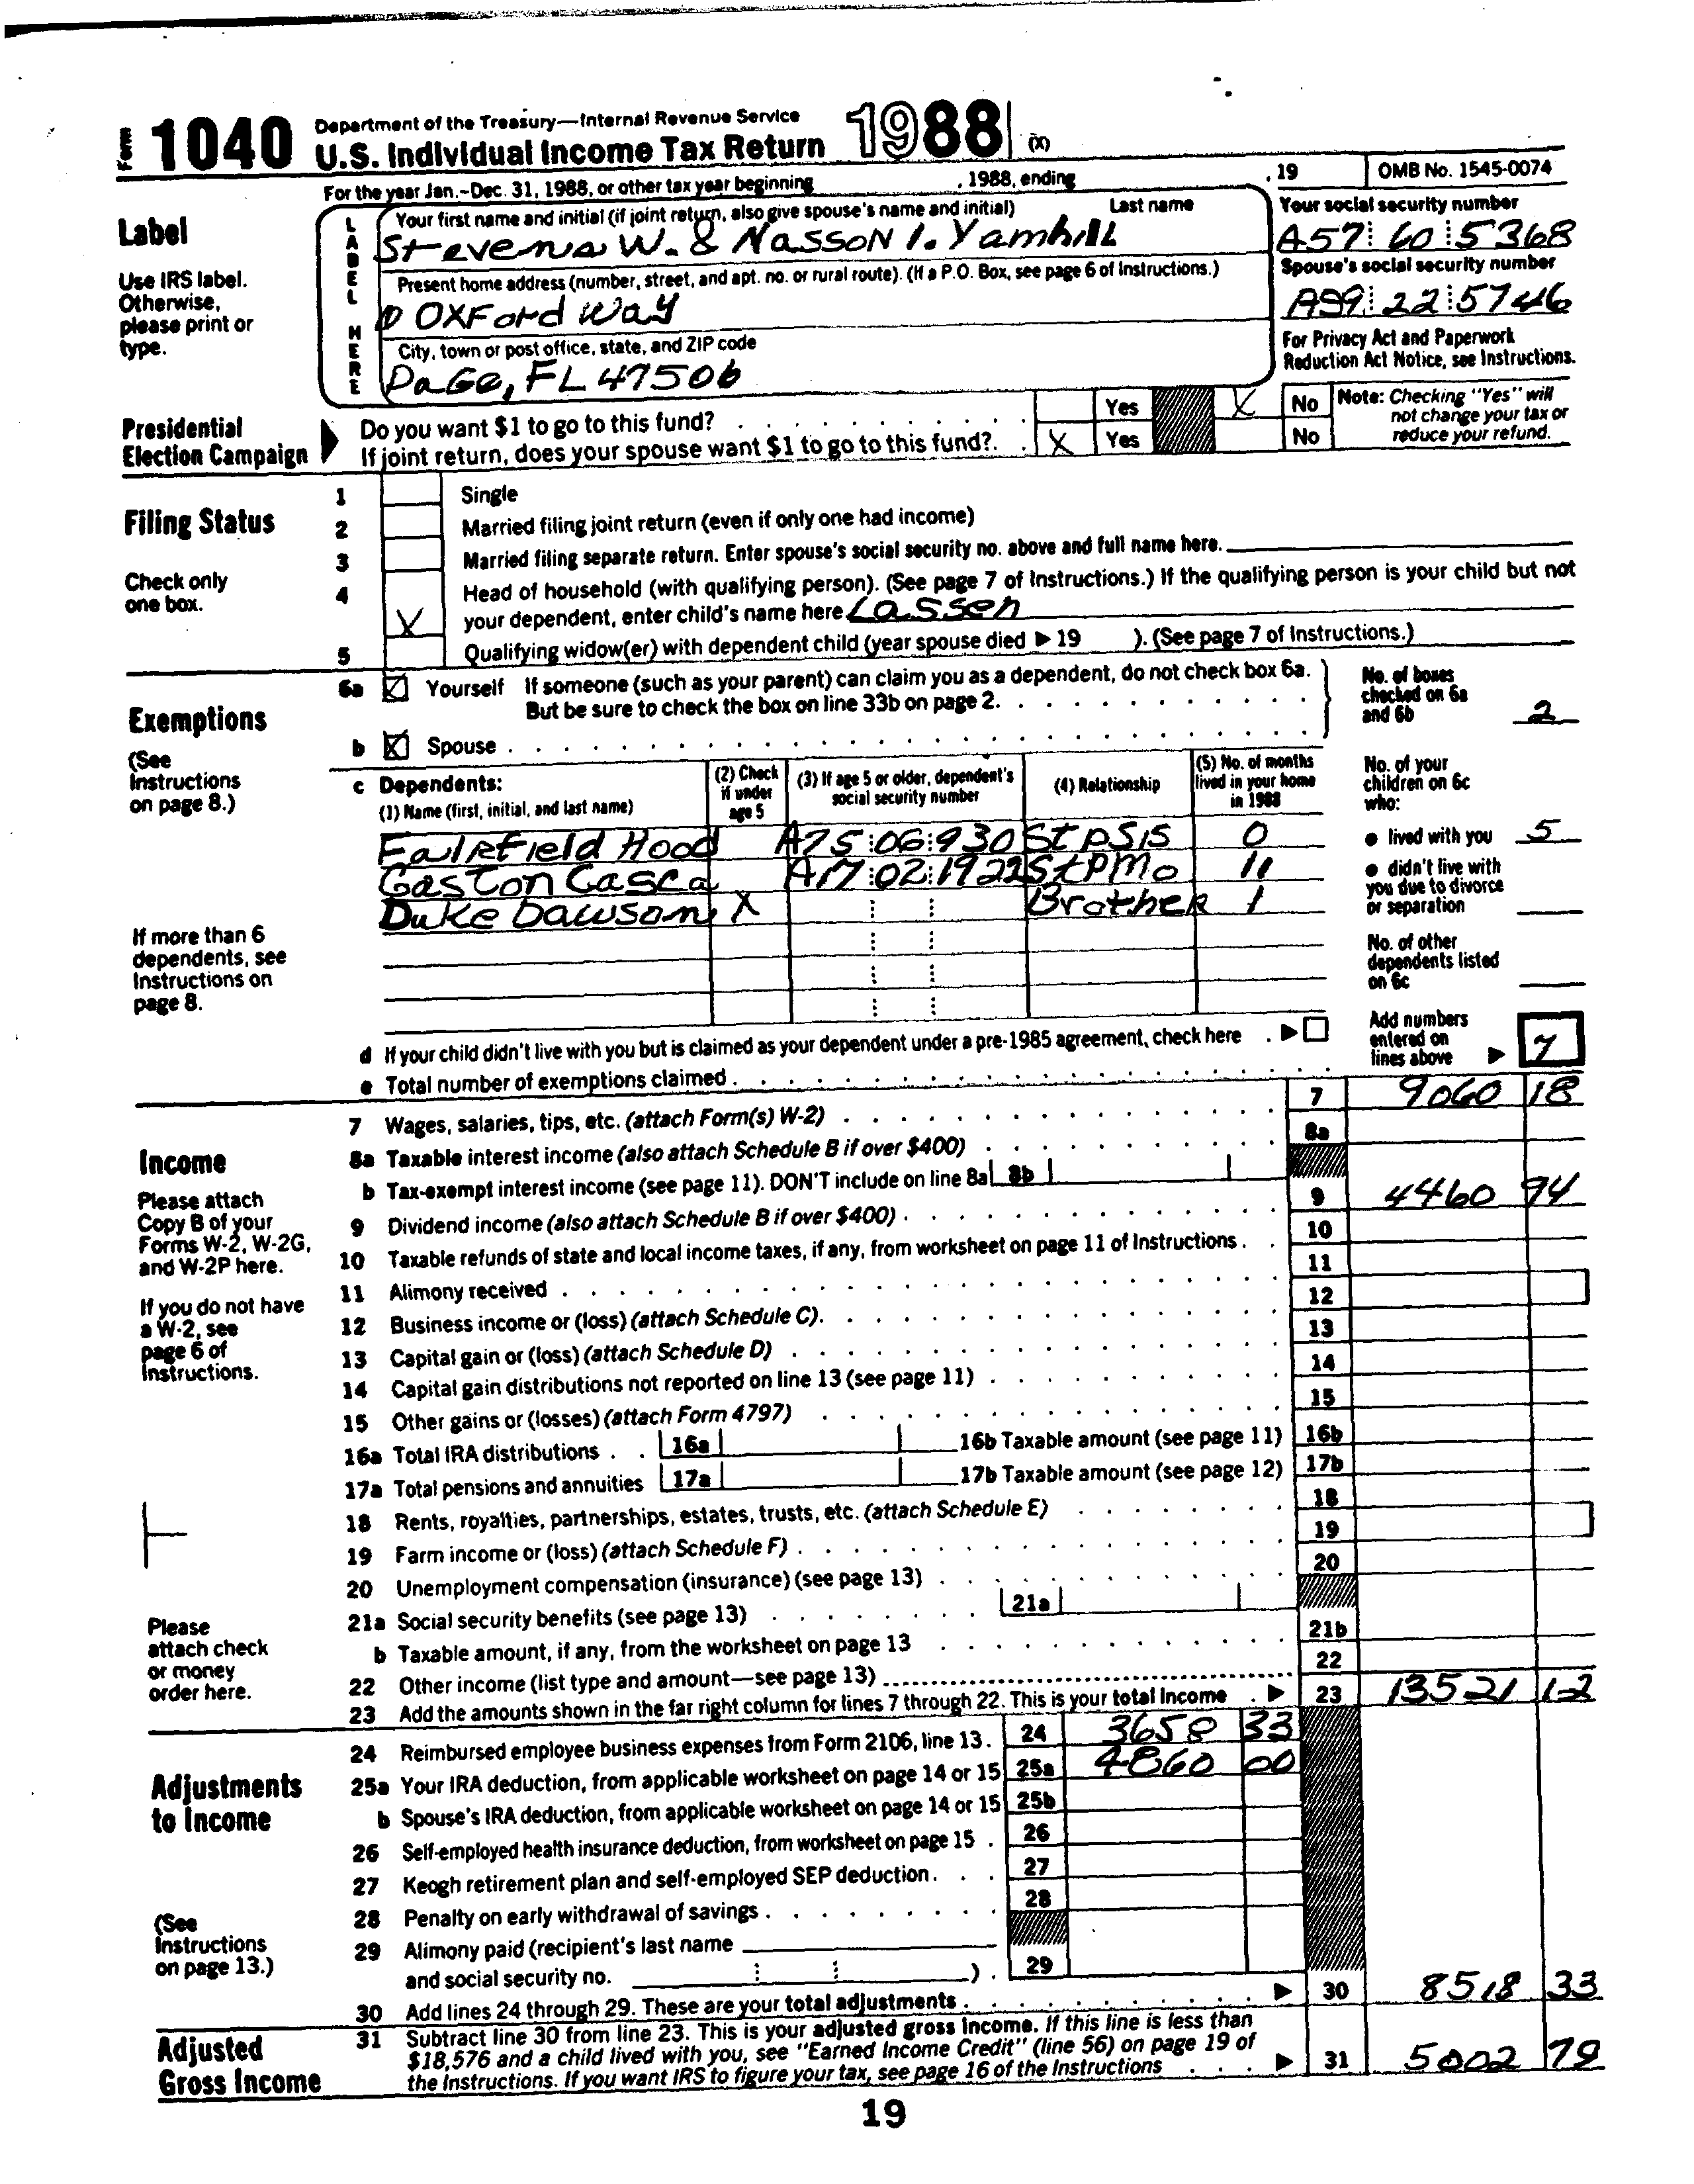 Form 1040 Department of the Treasury—Internal Revenue Service
U.S. Individual Income Tax Return 1988 (X)
For the year Jan.–Dec. 31, 1988, or other tax year beginning , 1988, ending , 19 OMB No. 1545-0074
Label
Use IRS label. Otherwise, please print or type.
LABEL HERE
Your first name and initial (if joint return, also give spouse's name and initial) Last name
Stevens W. & Nasson I. Yamhill
Your social security number
A57 60 5368
Present home address (number, street, and apt. no. or rural route). (If a P.O. Box, see page 6 of Instructions.)
Oxford Way
Spouse's social security number
A99 22 5746
City, town or post office, state, and ZIP code
Page, FL 47506
For Privacy Act and Paperwork Reduction Act Notice, see Instructions.
Presidential Election Campaign
Do you want $1 to go to this fund? Yes X No
If joint return, does your spouse want $1 to go to this fund? X Yes No
Note: Checking "Yes" will not change your tax or reduce your refund.
Filing Status
Check only one box.
1 Single
2 Married filing joint return (even if only one had income)
3 Married filing separate return. Enter spouse's social security no. above and full name here.
4 Head of household (with qualifying person). (See page 7 of Instructions.) If the qualifying person is your child but not
X your dependent, enter child's name here Lassen
5 Qualifying widow(er) with dependent child (year spouse died ▶ 19 ). (See page 7 of Instructions.)
Exemptions
(See Instructions on page 8.)
6a X Yourself If someone (such as your parent) can claim you as a dependent, do not check box 6a.
But be sure to check the box on line 33b on page 2.
b X Spouse
No. of boxes checked on 6a and 6b 2
c Dependents:
(1) Name (first, initial, and last name) (2) Check if under age 5 (3) If age 5 or older, dependent's social security number (4) Relationship (5) No. of months lived in your home in 1988
Fairfield Hood A75 06 930 StpSis 0
Gaston Casca A17 02 1922 StPMo 11
Duke Dawson X Brother 1
No. of your children on 6c who:
• lived with you 5
• didn't live with you due to divorce or separation
No. of other dependents listed on 6c
If more than 6 dependents, see Instructions on page 8.
d If your child didn't live with you but is claimed as your dependent under a pre-1985 agreement, check here ▶
e Total number of exemptions claimed
Add numbers entered on lines above ▶ 7
Income
Please attach Copy B of your Forms W-2, W-2G, and W-2P here.
If you do not have a W-2, see page 6 of Instructions.
Please attach check or money order here.
7 Wages, salaries, tips, etc. (attach Form(s) W-2) 7 9060 18
8a Taxable interest income (also attach Schedule B if over $400) 8a
b Tax-exempt interest income (see page 11). DON'T include on line 8a 8b
9 Dividend income (also attach Schedule B if over $400) 9 4460 94
10 Taxable refunds of state and local income taxes, if any, from worksheet on page 11 of Instructions 10
11 Alimony received 11
12 Business income or (loss) (attach Schedule C) 12
13 Capital gain or (loss) (attach Schedule D) 13
14 Capital gain distributions not reported on line 13 (see page 11) 14
15 Other gains or (losses) (attach Form 4797) 15
16a Total IRA distributions 16a 16b Taxable amount (see page 11) 16b
17a Total pensions and annuities 17a 17b Taxable amount (see page 12) 17b
18 Rents, royalties, partnerships, estates, trusts, etc. (attach Schedule E) 18
19 Farm income or (loss) (attach Schedule F) 19
20 Unemployment compensation (insurance) (see page 13) 20
21a Social security benefits (see page 13) 21a
b Taxable amount, if any, from the worksheet on page 13 21b
22 Other income (list type and amount—see page 13) 22
23 Add the amounts shown in the far right column for lines 7 through 22. This is your total income ▶ 23 13521 12
Adjustments to Income
(See Instructions on page 13.)
24 Reimbursed employee business expenses from Form 2106, line 13. 24 3658 33
25a Your IRA deduction, from applicable worksheet on page 14 or 15 25a 4860 00
b Spouse's IRA deduction, from applicable worksheet on page 14 or 15 25b
26 Self-employed health insurance deduction, from worksheet on page 15 26
27 Keogh retirement plan and self-employed SEP deduction 27
28 Penalty on early withdrawal of savings 28
29 Alimony paid (recipient's last name
and social security no. ) 29
30 Add lines 24 through 29. These are your total adjustments ▶ 30 8518 33
Adjusted Gross Income
31 Subtract line 30 from line 23. This is your adjusted gross income. If this line is less than
$18,576 and a child lived with you, see "Earned Income Credit" (line 56) on page 19 of
the Instructions. If you want IRS to figure your tax, see page 16 of the Instructions ▶ 31 5002 79
19